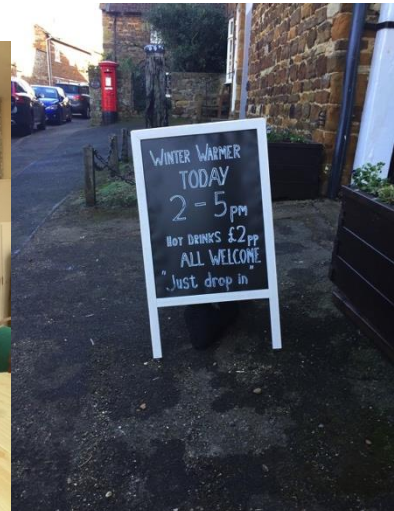 WINTER WARMER
TODAY
2 - 5 pm
HOT DRINKS £2 pp
ALL WELCOME
"Just drop in"